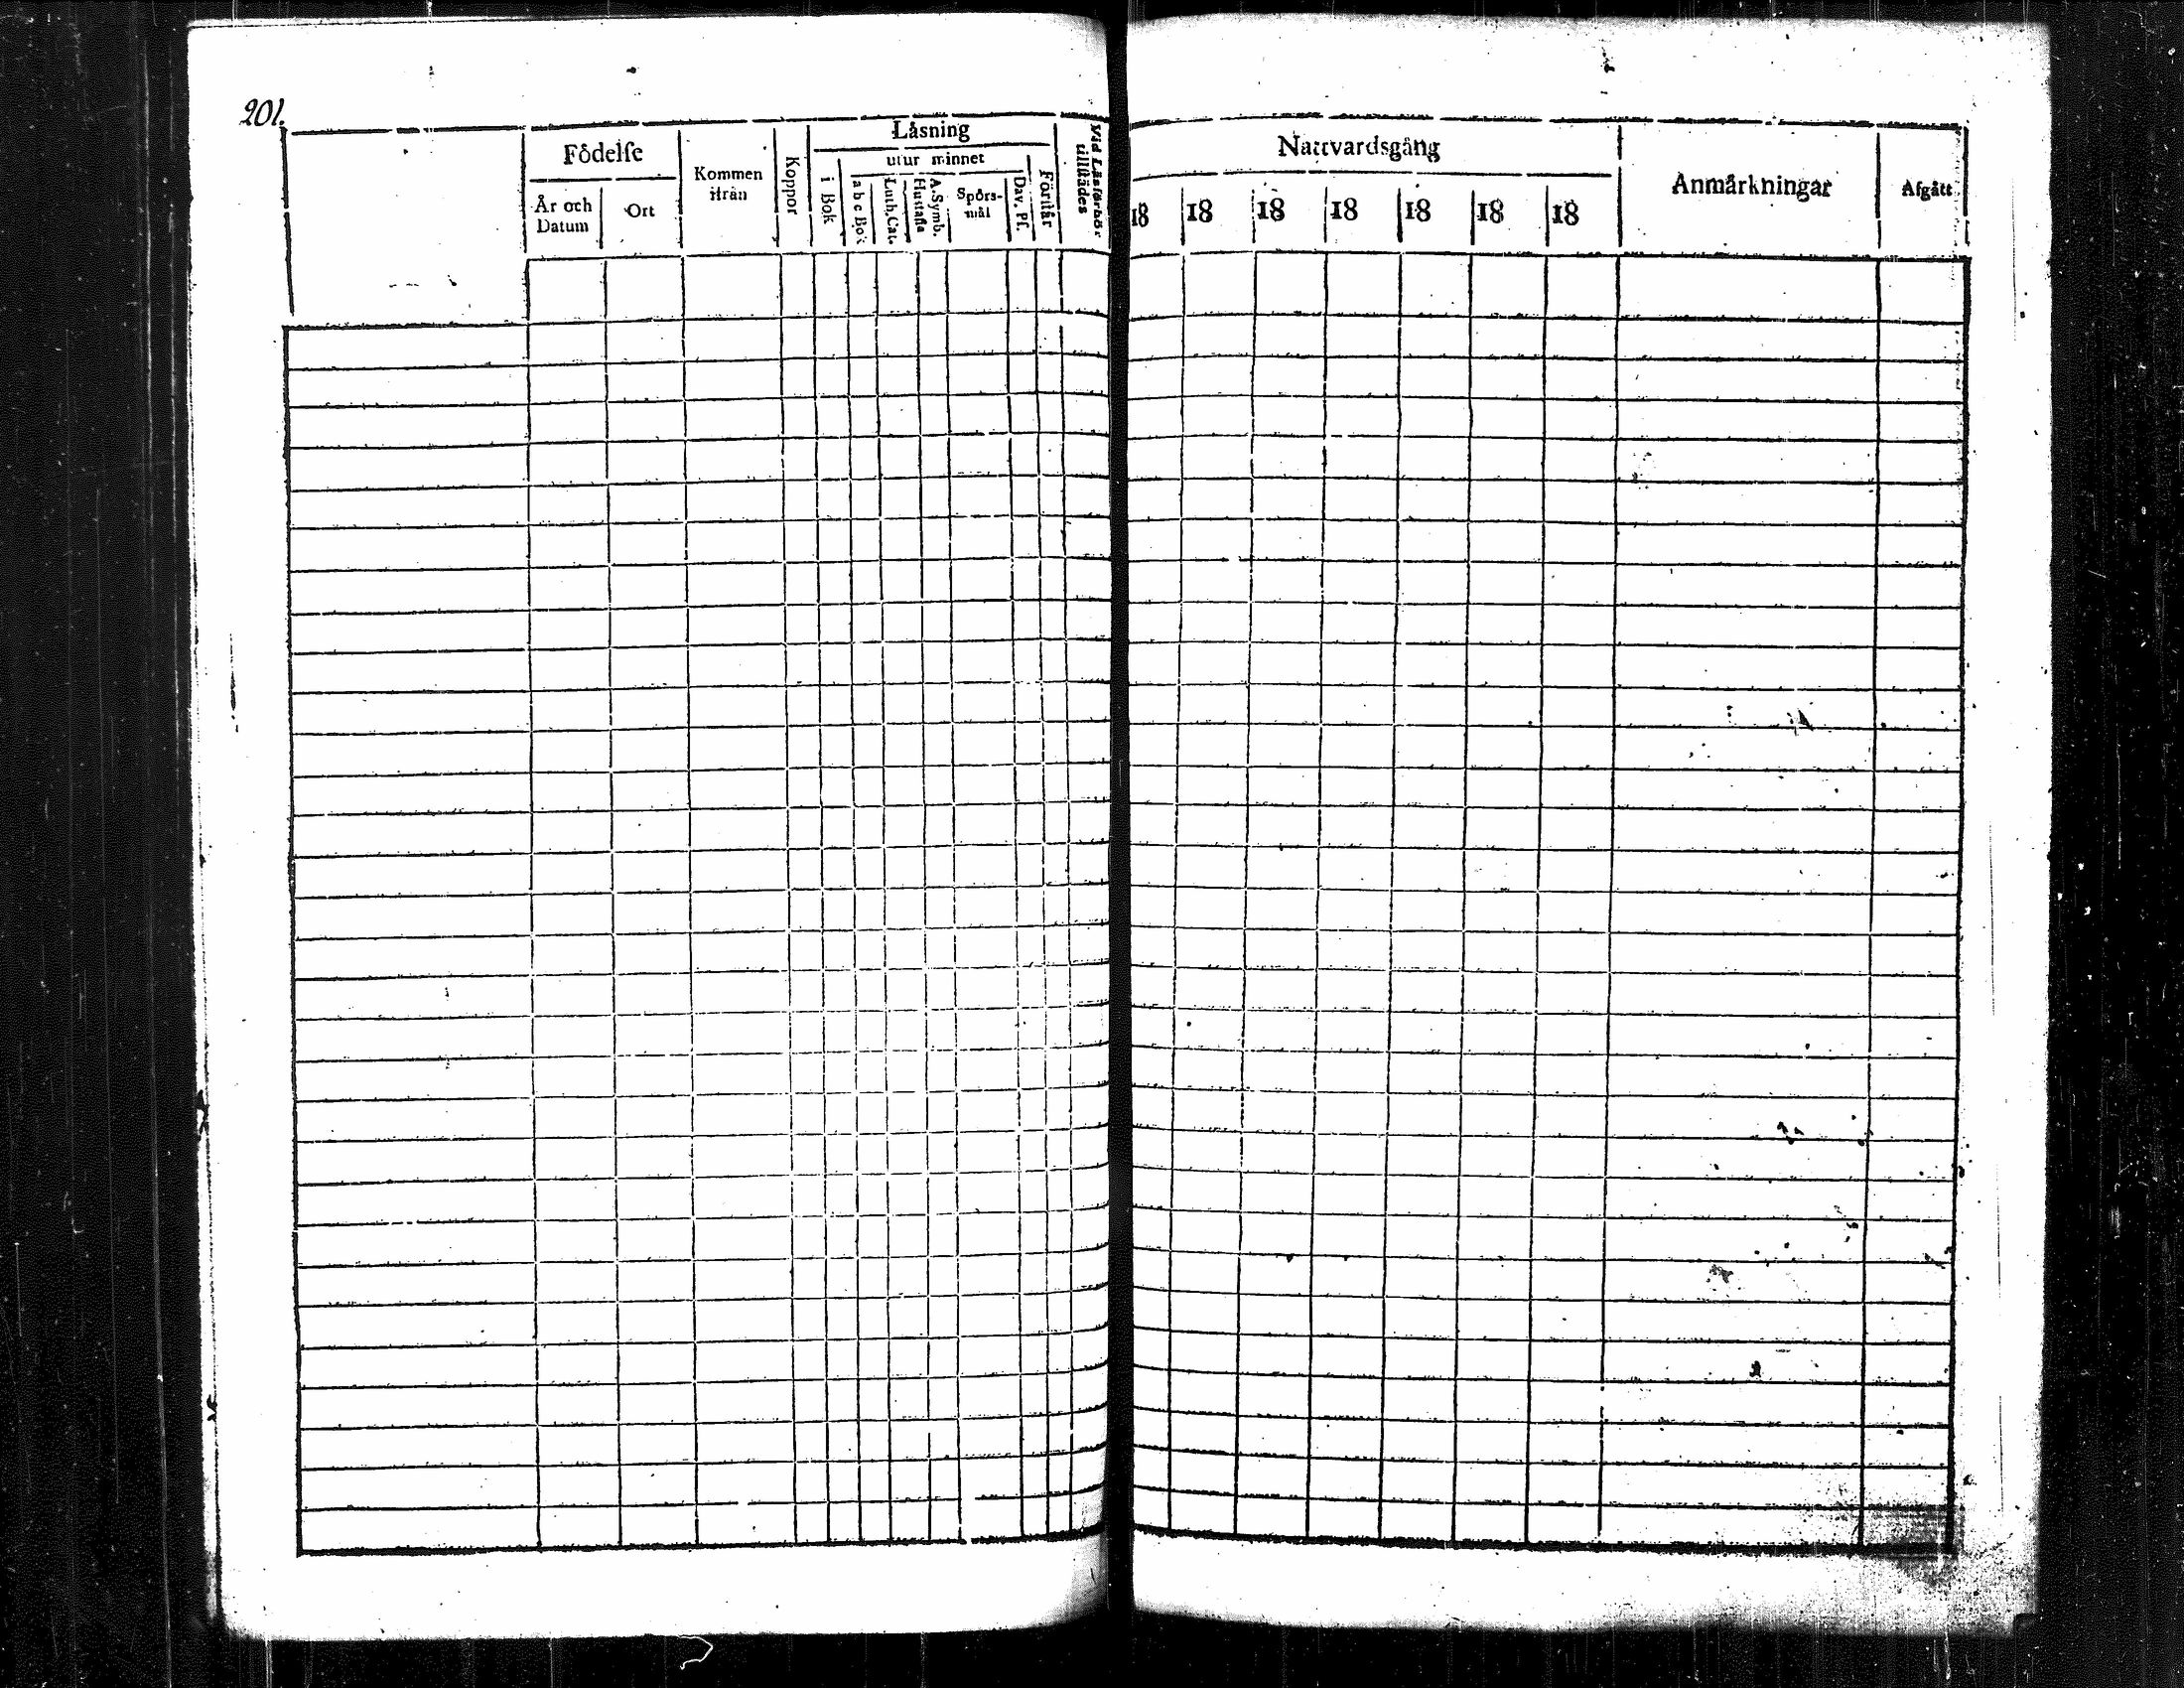 201.
Låsning
Fôdelſe
utur minnet
Kommen
ifrån
Koppor
År och
Datum
Ort
i Bok
a b c Bok
Luth. Cat.
A. Symb.
Huſtafla
Spôrs-
mål
Dav. Pſ.
Fôrſtår
Vid Läsförhör
tillſtädes
Nattvardsgång
18 18 18 18 18 18 18
Anmårkningar
Afgått